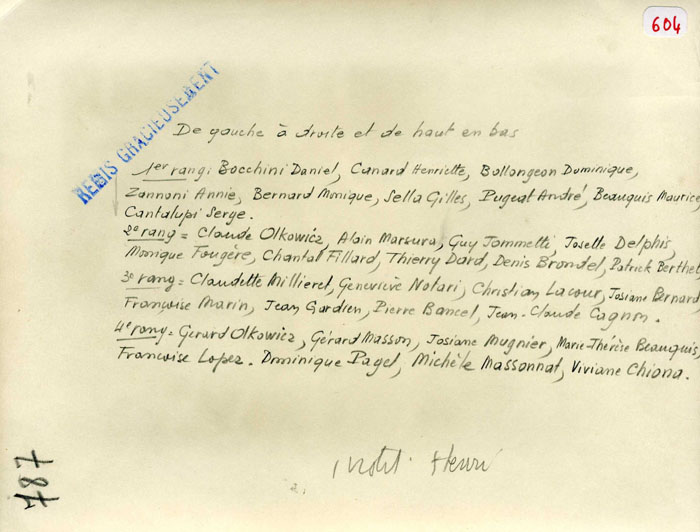 604
REMIS GRACIEUSEMENT
De gauche à droite et de haut en bas
1er rang: Bocchini Daniel, Canard Henriette, Bollongeon Dominique,
Zannoni Annie, Bernard Monique, Sella Gilles, Pugeat André, Beauquis Maurice,
Cantalupi Serge.
2e rang = Claude Olkowicz, Alain Marsura, Guy Jommetti, Josette Delphis,
Monique Fougère, Chantal Fillard, Thierry Dard, Denis Brondel, Patrick Berthet,
3e rang = Claudette Millieret, Geneviève Notari, Christian Lacour, Josiane Bernard,
Françoise Marin, Jean Gardien, Pierre Bancel, Jean-Claude Cagnon.
4e rang = Gerard Olkowicz, Gérard Masson, Josiane Mugnier, Marie-Thérèse Beauquis,
Françoise Lopez. Dominique Paget, Michèle Massonnat, Viviane Chiona.
Henri
787